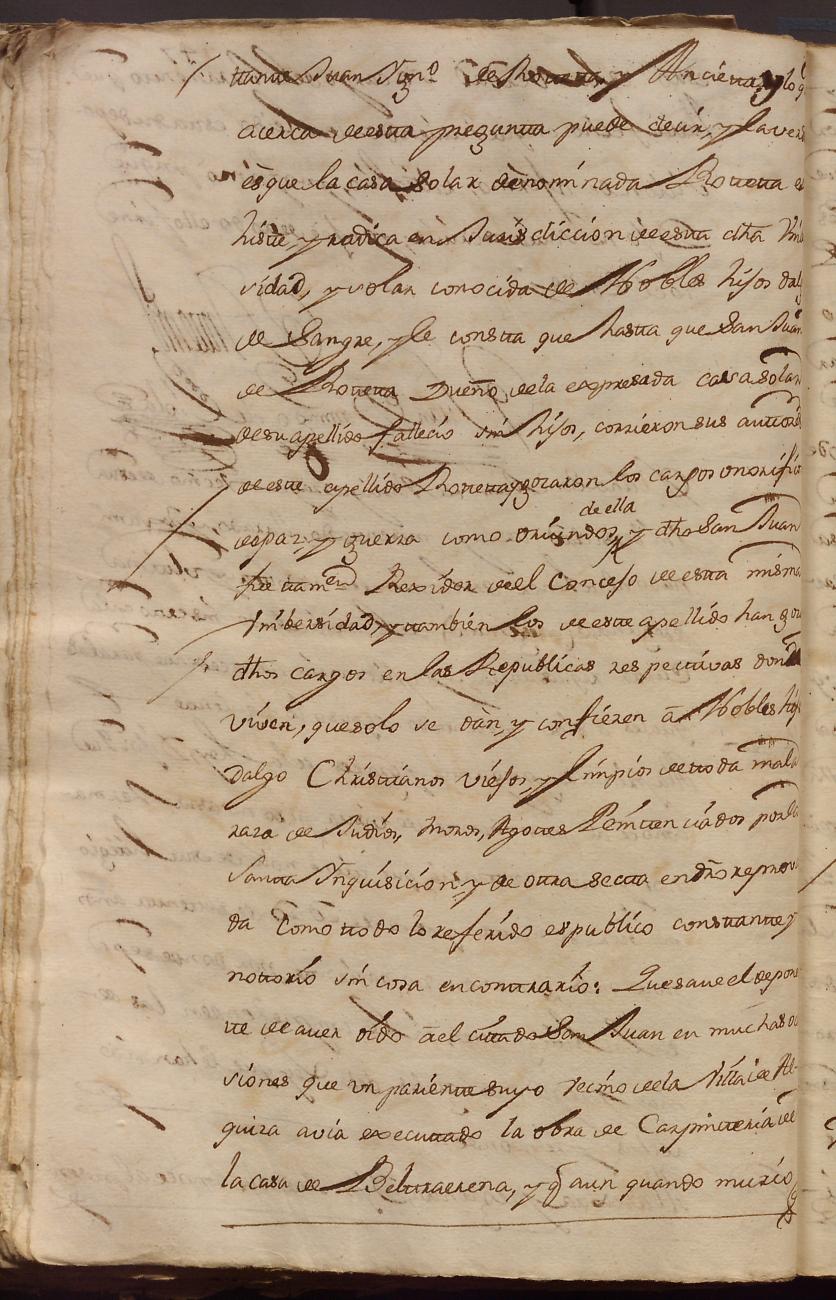 ttante Juan Ygn.º de Rotetta, y Ancietta, y lo q
acerca de esta pregunta puede decir, y la ver
es que la casa solar denominada Rotteta e
histe, y radica en Jurisdiccion de esta dha Vni
vidad, y solar conocida de Nobles hijos dalg
de Sangre, y le consta que hasta que San Juan
de Rotteta Dueño de la expresada casa solar
de su apellido fallecio sin hijos, corrieron sus auttores
de este apellido Rotteta y gozaron los cargos onorifi
de paz, y guerra como oriundos de ella, y dho San Juan
fue tam.en Rexidor de el Concejo de esta misma
Vnibersidad, y tambien los de este apellido han go
dhos cargos en las Republicas respectivas donde
viven, que solo se dàn, y confieren à Nobles hijos
dalgo Christtianos viejos, y limpios de toda mala
raza de Judios, moros, Agotes Penitenciados por la
Santta Ynquisicion, y de otra secta en dro reprova
da Como ttodo lo referido es publico constante y
nottorio sin cosa en contrario: Que save el depon
te de aver oido à el cittado San Juan en muchas oca
siones que vn pariente suyo vecino de la Villa de Al-
quiza avia executtado la obra de Carpinteria de
la casa de Belttraerena, y q aun quando murio